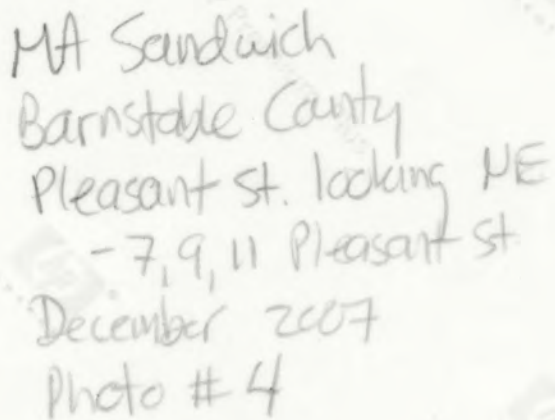 MA Sandwich
Barnstable County
Pleasant St. looking NE
- 7, 9, 11 Pleasant St
December 2007
Photo # 4